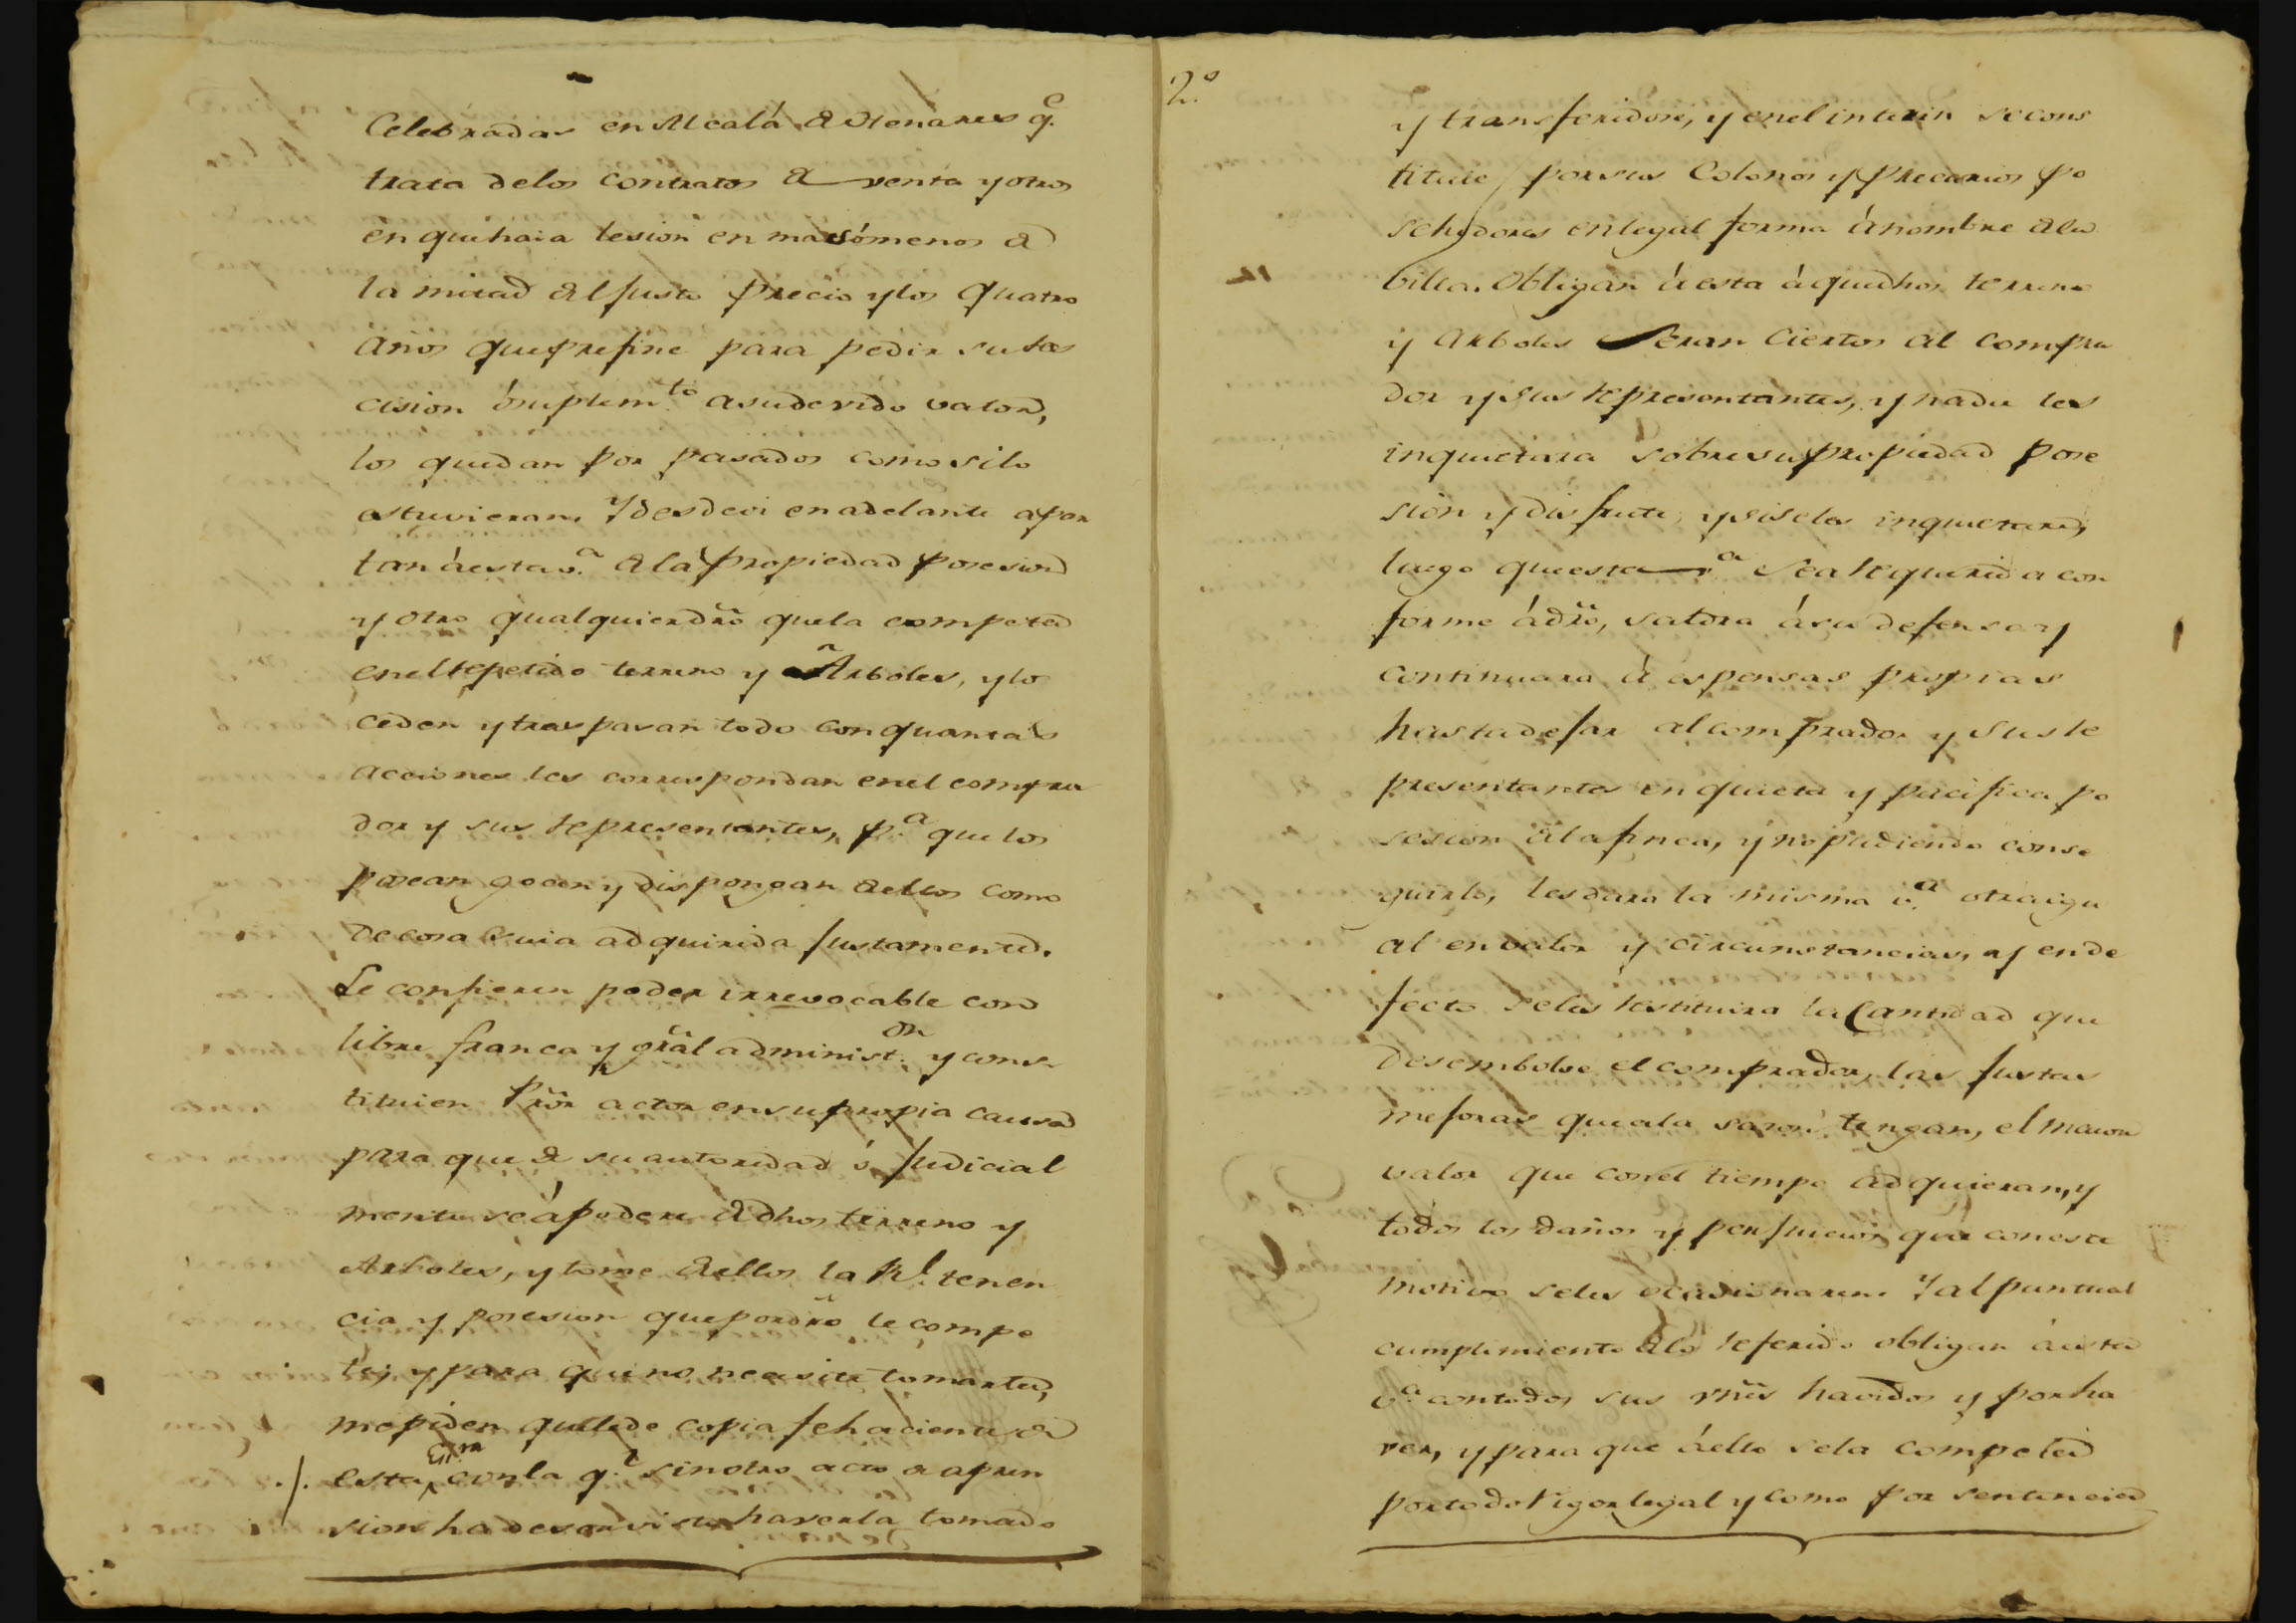 Celebradas en Alcalá de Henares q.e
trata delos contratos de venta y otros
en que haia lesion en mas ó menos de
la mitad del justo precio y los quatro
años que prefine para pedir su res
cision ó suplem.to a su devido valor,
los quedan por pasados como si lo
estuvieran. Y desde oi en adelante apar
tan á esta v.a de la propiedad posesion
y otro qualquier dro que la compete
en el repetido terreno y Arboles, y lo
ceden y traspasan todo con quantas
acciones les correspondan en el compra
dor y sus representantes, p.a que los
posean gocen y dispongan de ellos como
de cosa suia adquirida justamente.
Se confieren poder irrevocable con
libre franca y gral administ.on y cons
tituien Pror actor en su propia causa
para que de su autoridad ó judicial
mente se ápodere de dhos terreno y
Arboles, y tome de ellos la Rl. tenen
cia y posesion que por dro le compe
te; y para que no necesite tomarla,
me piden que le de copia fehaciente de
./. esta Esra con la q.l sin otro acto de apren
sion ha de ser visto haverla tomado
2.º
y transferidose, y en el interin se cons
tituie por sus Colonos y precarios po
sehedores en legal forma á nombre de la
villa. Obligan á esta á que dhos terreno
y Arboles Seran Ciertos al compra
dor y sus representantes, y nadie les
inquietara sobre su propiedad pose
sion y disfrute; y si se les inquietare,
luego que esta v.a sea requerida con
forme á dro, saldra á su defensa y
continuara á espensas propias
hasta dejar al comprador y sus re
presentantes en quieta y pacifica po
sesion de la finca, y no pudiendo conse
guirlo, les dara la misma v.a otra igu
al en valor y circunstancias, y en de
fecto se les restituira la Cantidad que
desembolse el comprador, las justas
mejoras que ala sazon tengan, el maior
valor que con el tiempo adquieran, y
todos los daños y perjuicios que con este
motivo se les ocasionaren. Y al puntual
cumplimiento de lo referido obligan á esta
v.a con todos sus vnes havidos y por ha
ver, y para que á ello se la compela
por todo rigor legal y como por sentencia